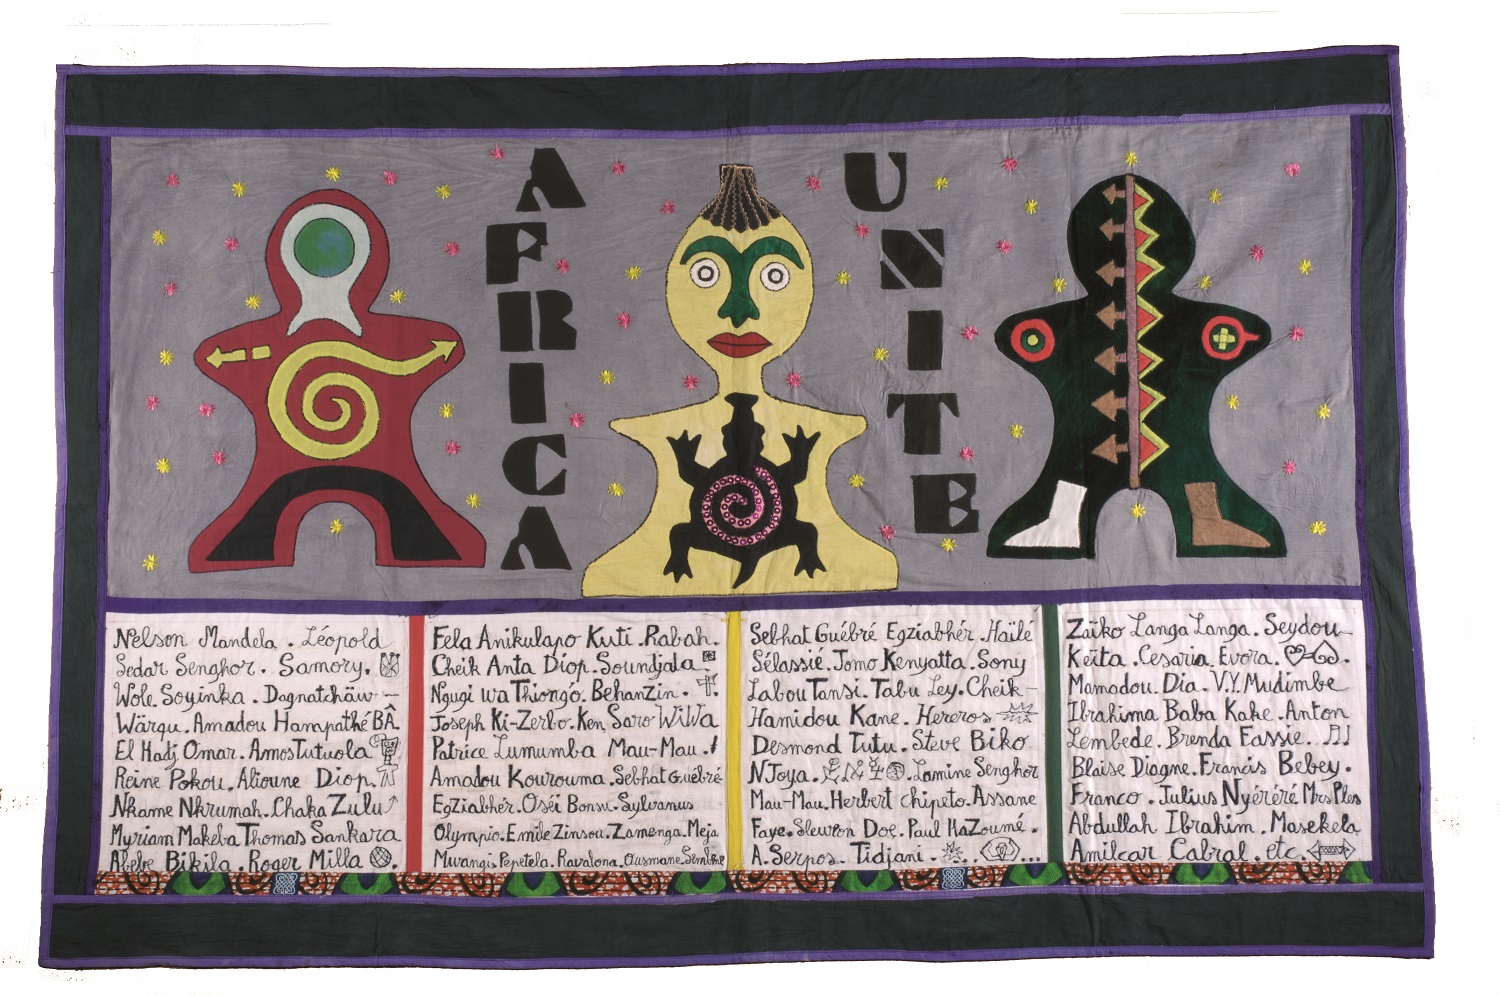 AFRICA
UNITE
Nelson Mandela. Léopold
Sedar Senghor. Samory.
Wole Soyinka. Dagnatchäw —
Wärqu. Amadou Hampathé BÂ
El Hadj Omar. Amos Tutuola
Reine Pokou. Alioune Diop.
Nkame Nkrumah. Chaka Zulu
Myriam Makeba Thomas Sankara
Abebe Bikila. Roger Milla
Fela Anikulapo Kuti. Rabah.
Cheik Anta Diop. Soundjata
Ngugi wa Thiongo. Behanzin.
Joseph Ki-Zerbo. Ken Saro WiWa
Patrice Lumumba Mau-Mau.
Amadou Kourouma. Sebhat Guébré-
Egziabhér. Oséi Bonsu. Sylvanus
Olympio. Emile Zinsou. Zamenga. Meja
Mwangi. Pepetela. Ravalona. Ousmane Sembhe
Sebhat Guébré Egziabhér. Haïlé
Sélassié. Jomo Kenyatta. Sony
Labou Tansi. Tabu Ley. Cheik-
Hamidou Kane. Hereros
Desmond Tutu. Steve Biko
NJoya. Lamine Senghor
Mau-Mau. Herbert chipeto. Assane
Faye. Slewon Doe. Paul HaZoumé.
A. Serpos. Tidjani. ...
Zaïko Langa Langa. Seydou-
Keïta. Cesaria. Evora.
Mamadou. Dia. V.Y. Mudimbe
Ibrahima Baba Kake. Anton
Lembede. Brenda Fassie.
Blaise Diagne. Francis Bebey.
Franco. Julius Nyéréré Mrs Ples
Abdullah Ibrahim. Masekela
Amilcar Cabral. etc.